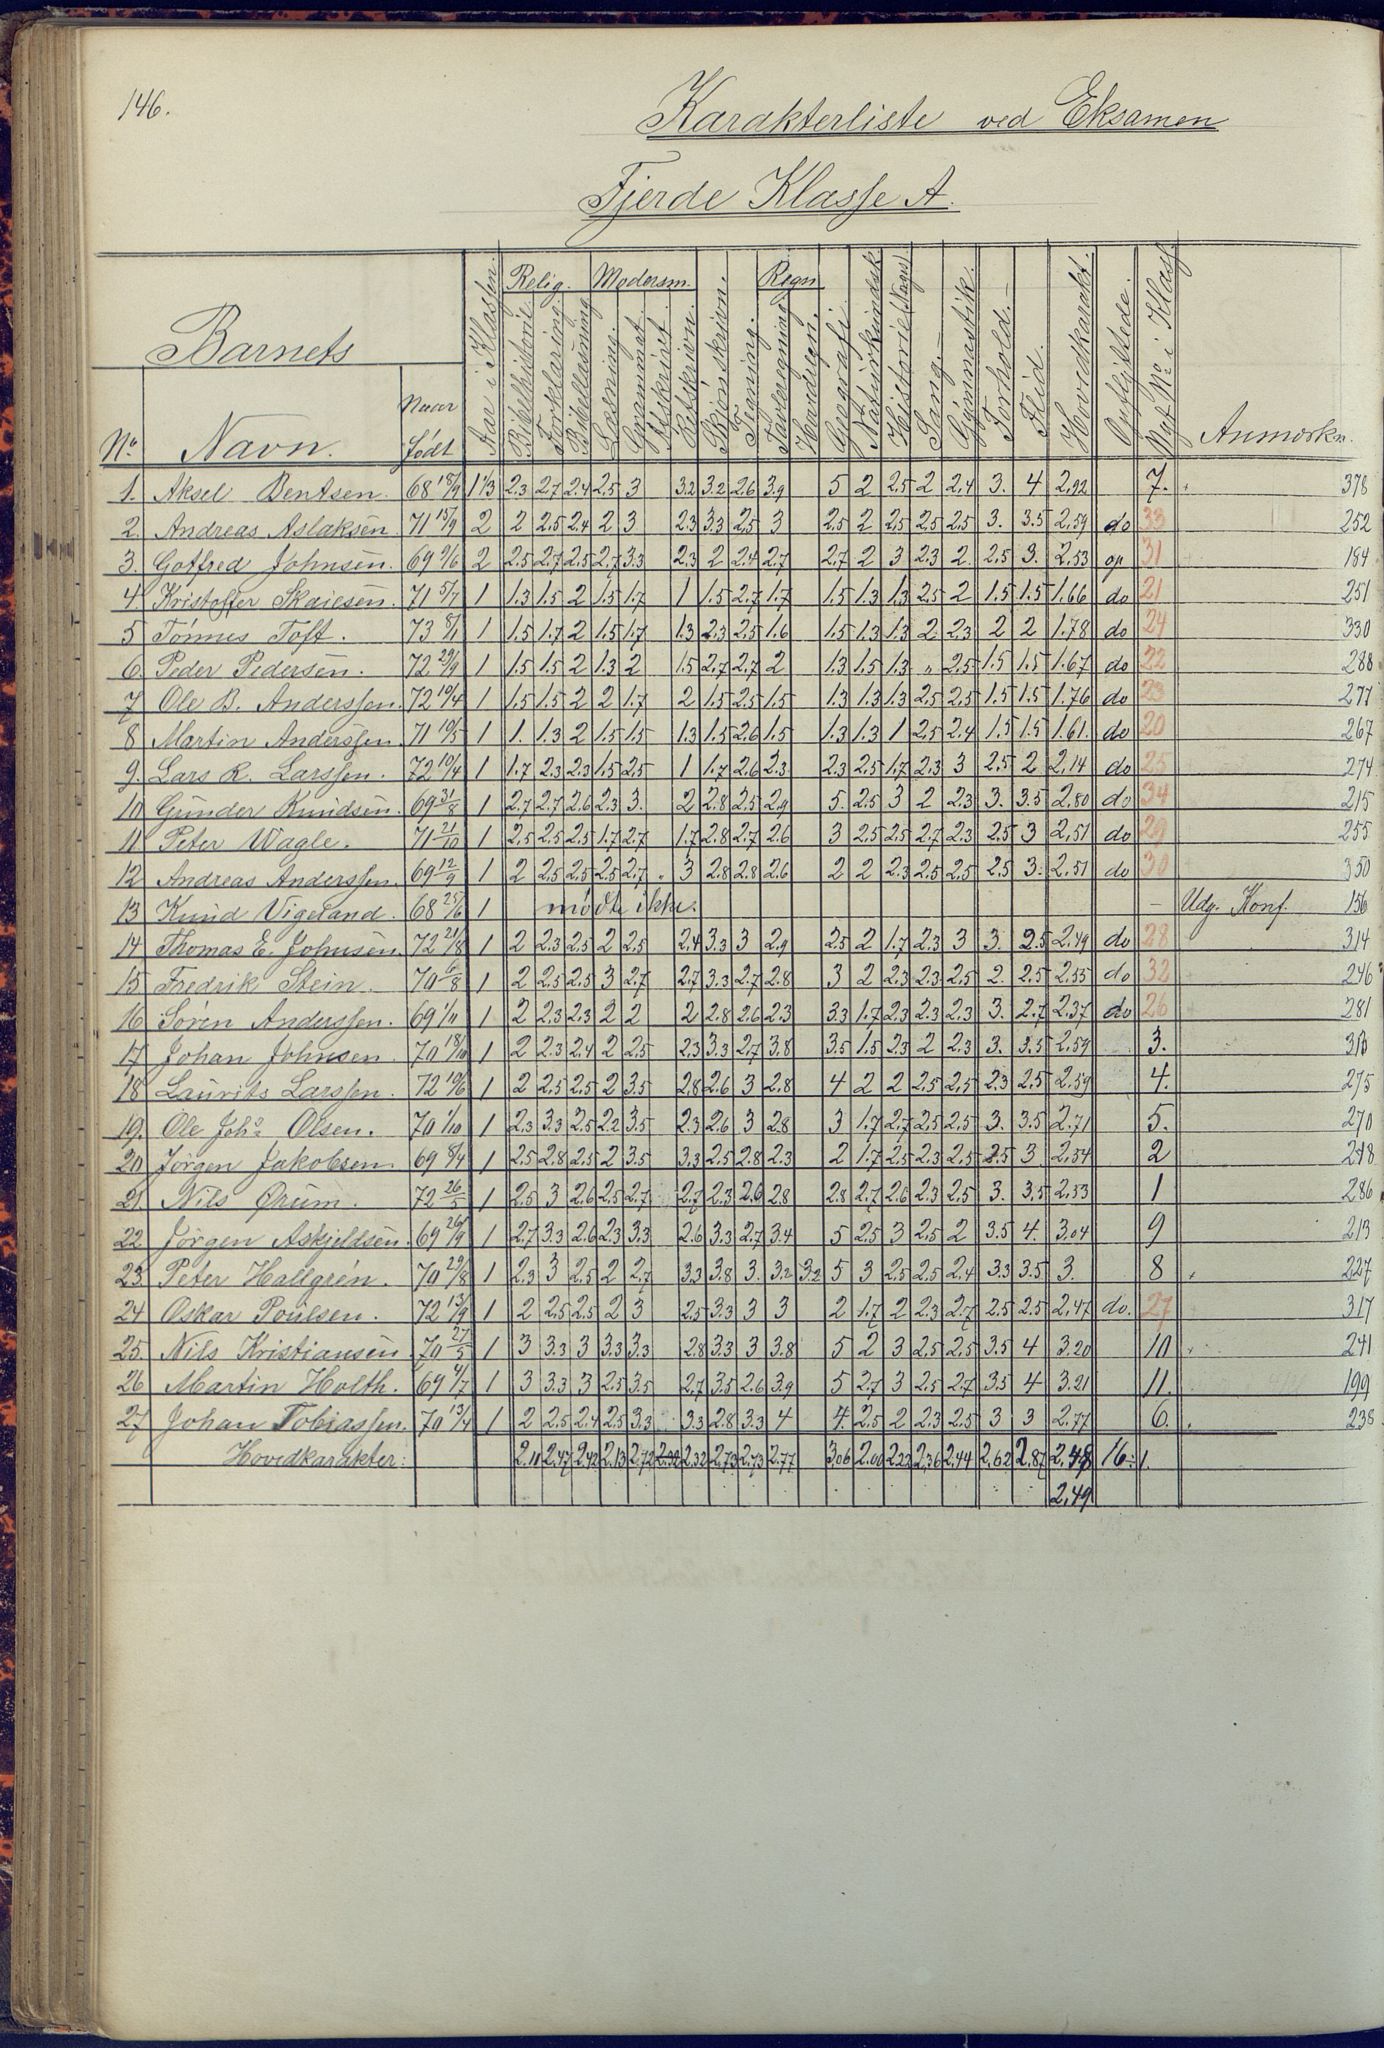 146.
Karakterliste ved Eksamen
Fjerde Klasse A.
Barnets
No. Navn. Naar født Aar i Klassen. Relig. Bibelhistorie. Forklaring. Bibellæsning Modersm. Læsning. Grammat. Retskrivn. Skjönskrivn. Tegning. Regn. Tavleregning Hovedregn. Geografi. Naturkundsk. Historie (Norges) Sang. Gymnastik. Forhold. Flid. Hovedkarakt. Opflyttede. Nyt No. i Klass. Anmærkn.
1. Aksel Bentsen. 68 18/9 1 1/3 2.3 2.7 2.4 2.5 3 3.2 3.2 2.6 3.9 5 2 2.5 2 2.4 3. 4 2,92 7. 378
2. Andreas Aslaksen 71 15/9 2 2 2.5 2.4 2 3 2.3 3.3 2.5 3 2.5 2 2.5 2.5 2.5 3. 3.5 2,59 do 33 252
3. Gotfred Johnsen. 69 9/6 2 2.5 2.7 2.5 2.7 3.3 2.3 2 2.4 2.7 2.7 2 3 2.3 2. 2.5 3. 2,53 op 31 184
4. Kristoffer Skaiesen. 71 5/7 1 1.3 1.5 2 1.5 1.7 1 1.5 2.7 1.7 1.5 1.3 1.3 2.5 2 1.5 1.5 1.66 do 21 251
5 Tönnes Toft. 73 8/1 1 1.5 1.7 2 1.5 1.7 1.3 2.3 2.5 1.6 1.5 1.3 1.3 2. 2.3 2 2 1.78 do 24 330
6. Peder Pedersen. 72 29/9 1 1.5 1.5 2 1.3 2 1.5 2.7 2.7 2 1.3 1.5 1.3 „ 2.5 1.5 1.5 1.67 do 22 288
7 Ole B. Anderssen. 72 10/4 1 1.5 1.5 2 2 1.7 2 1.5 2.5 1.5 1.3 1.3 1.3 2.5 2.5 1.5 1.5 1.76 do 23 277
8 Martin Anderssen. 71 10/5 1 1. 1.3 2 1.5 1.5 1.3 1.5 2.6 1.5 1.3 1.3 1 2.5 2.4 1.5 1.5 1.61. do 20 267
9. Lars R. Larssen. 72 10/4 1 1.7 2.3 2.3 1.5 2.5 1 1.7 2.6 2.3 2.3 2.5 1.7 2.3 3 2.5 2 2,14 do 25 274
10 Gunder Knudsen. 69 31/8 1 2.7 2.7 2.6 2.3 3. 2 2.8 2.5 2.9 5. 2.5 3 2 2.3 3. 3.5 2,80 do 34 215
11 Peter Wagle. 71 21/10 1 2.5 2.5 2.5 1.7 2.7 1.7 2.8 2.7 2.6 3 2.5 2.5 2.7 2.3 2.5 3 2,51 do 29 255
12 Andreas Anderssen. 69 12/9 1 2 2.5 2.5 2.5 2.7 3 2.8 2.8 2.6 2 2 2.3 2.5 2.5 2.5 3. 2,51 do 30 350
13 Knud Vigeland. 68 25/6 1 mødte ikke. – Udg. Konf. 156
14 Thomas E. Johnsen. 72 21/8 1 2 2.3 2.5 2 2.5 2.4 3.3 3 2.9 2.5 2 1.7 2.3 3 3. 2.5 2,49 do 28 314
15 Fredrik Stein. 70 6/8 1 2 2.5 2.5 3 2.7 2.7 3.3 2.7 2.8 3 2 2.3 2.3 2.5 2. 2.5 2,55 do 32 246
16 Sören Anderssen. 69 1/11 1 2 2.3 2.3 2 2 2 2.8 2.6 2.3 3.3 1.7 2.3 2.3 2.3 3. 2.7 2,37 do 26 281
17 Johan Johnsen 70 18/10 1 2 2.3 2.4 2 2.5 2.3 3.3 2.7 3.8 3.5 1.5 2.3 2 2.3 3. 3.5 2,59 3. 313
18 Laurits Larssen. 72 10/6 1 2 2.5 2.5 2 3.5 2.8 2.6 3 2.8 4 2 2 2.5 2.5 2.3 2.5 2.59 4. 275
19. Ole Johs. Olsen. 70 1/10 1 2.3 3.3 2.5 2.2 3.5 2.3 2.6 3 2.8 3 1.7 2.7 2.5 2.5 3. 3.5 2,71 5. 270
20 Jørgen Jakobsen. 69 8/4 1 2.5 2.8 2.5 2 3.5 3.3 2.5 2.8 2.3 2 1.7 2.5 2.3 2.5 2.5 3. 2,54 2 248
21. Nils Ørum. 72 26/5 1 2.5 3 2.6 2.5 2.7 2.7 2.3 2.6 2.8 2.8 2.7 2.6 2.3 2.5 3. 3.5 2,53 1 286
22 Jörgen Askjeldsen. 69 26/9 1 2.7 3.3 2.6 2.3 3.3 2.6 3.3 2.7 3.4 5 2.5 3 2.5 2 3.5 4. 3,04 9 213
23. Peter Hallgrén. 70 29/8 1 2.3 3 2.5 2 2.7 3.3 3.8 3. 3.2 3.2 5 3 2.5 2.5 2.4 3.3 3.5 3. 8 227
24 Oskar Poulsen. 72 13/9 1 2 2.5 2.5 2 3 2.5 3.3 3 3 2 1.7 2 2.3 2.7 2.5 2.5 2,47 do. 27 317
25. Nils Kristiansen. 70 27/5 1 3 3.3 3 3.3 3.3 2.8 3.3 3 3.8 5 2 3 2.5 2.5 3.5 4 3.20 10 241
26 Martin Holth. 69 4/7 1 3 3.3 3 2.5 3.5 2.7 3.5 2.6 3.9 5 2.7 3 2.5 2.7 3.5 4 3.21 11. 199
27 Johan Tobiassen. 70 13/4 1 2 2.5 2.4 2.5 3.3 3.3 2.8 3.3 4 4. 2.5 2 2.3 2.5 3 3 2,77 6. 238
Hovedkarakter: 2.11 2.47 2.42 2.13 2.72 2.32 2.32 2.73 2.73 2.77 3.06 2.00 2.22 2.36 2.44 2,62 2.87 2,48 16: 1.
2,49